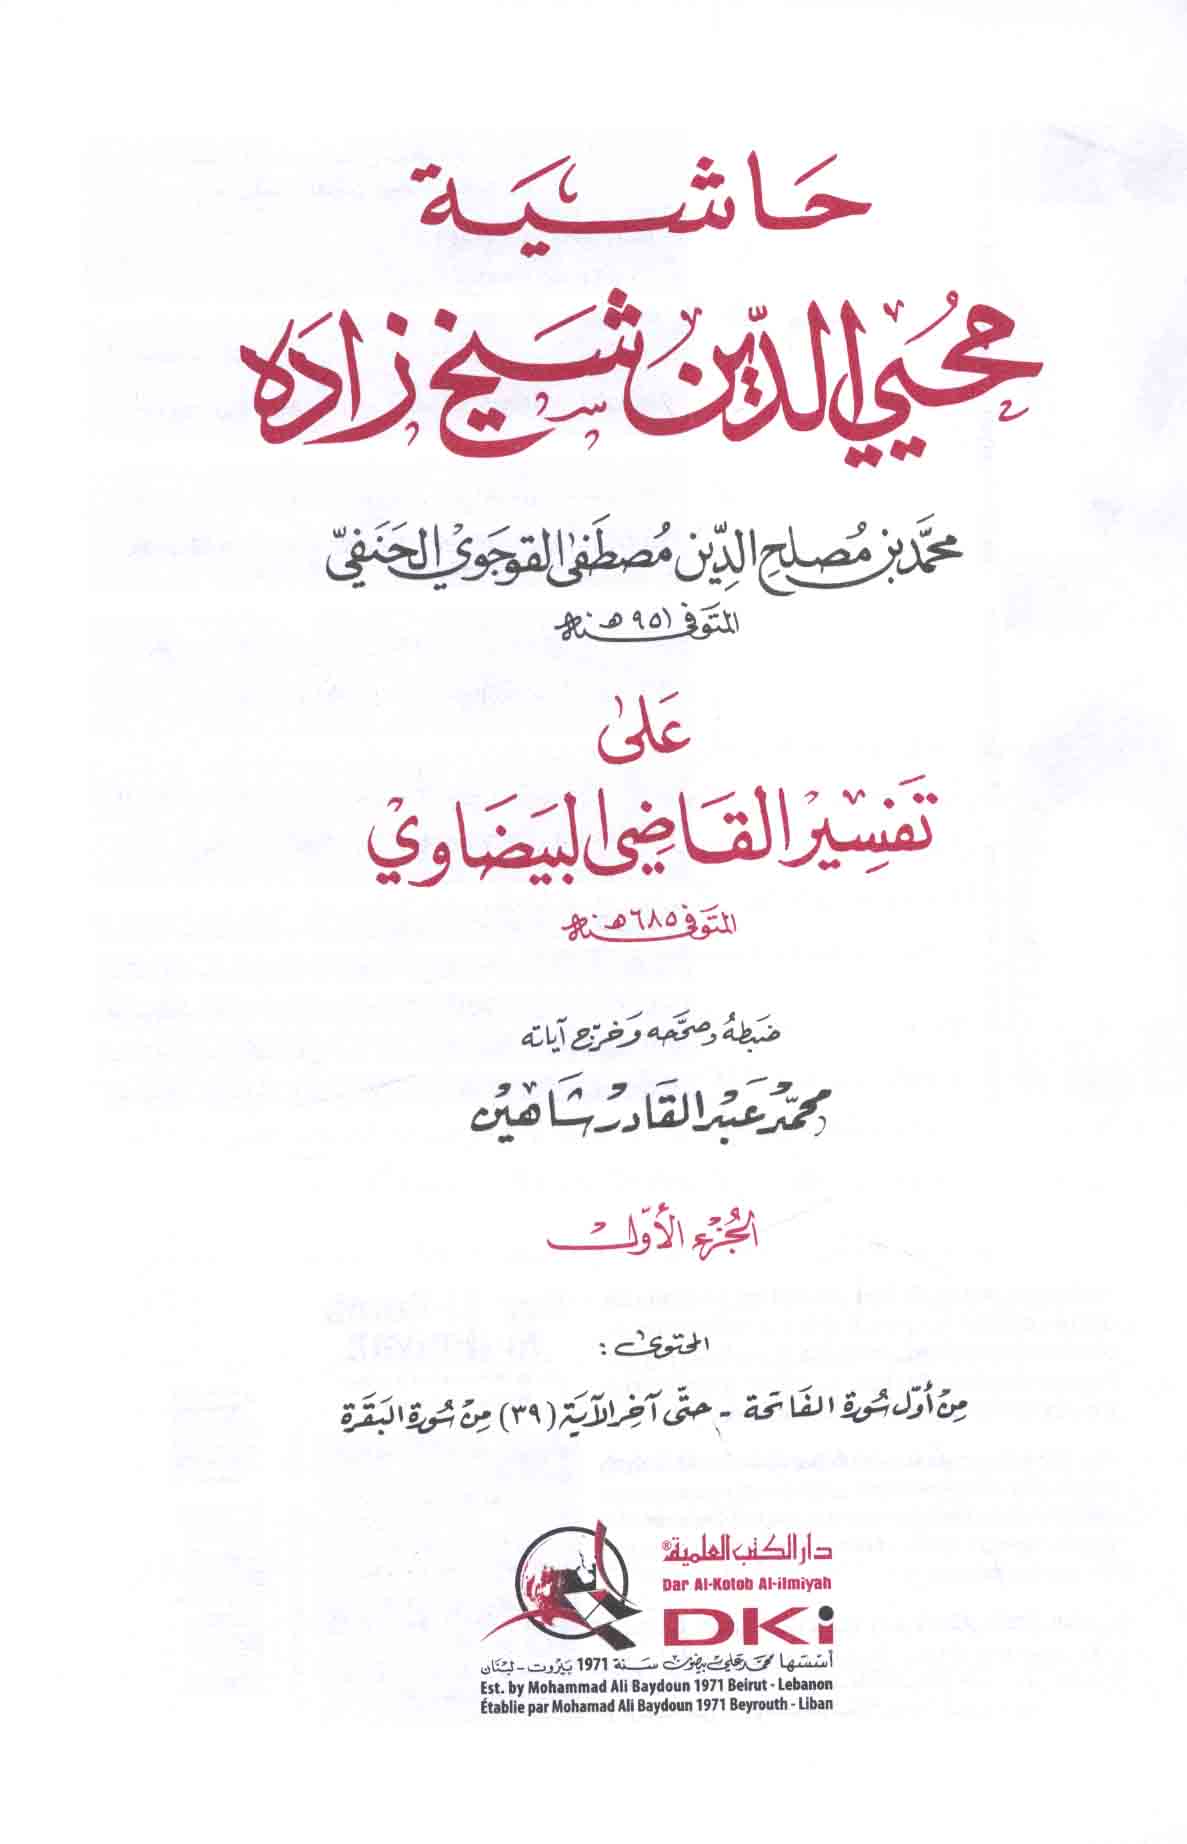 حاشية
محيي الدين شيخ زاده
محمَّد بن مُصلح الدِّين مُصطَفى القوجَويْ الحَنَفيّ
المتَوفى سنة ٩٥١هـ
عَلى
تَفسِير القَاضِي البَيضَاويْ
المتَوفى سنة ٦٨٥هـ
ضَبَطهُ وصحَّحه وَخرّج آياته
محمَّد عَبْد القَادر شَاهين
الجُزء الأوّل
المحتوى :
مِنْ أوّل سُورة الفَاتحة - حتّى آخِر الآيَة (٣٩) مِنْ سُورَة البَقَرَة
دار الكتب العلمية®
Dar Al-Kotob Al-ilmiyah
DKi
أسسها محمد علي بيضون سنة 1971 بيروت - لبنان
Est. by Mohammad Ali Baydoun 1971 Beirut - Lebanon
Établie par Mohamad Ali Baydoun 1971 Beyrouth - Liban